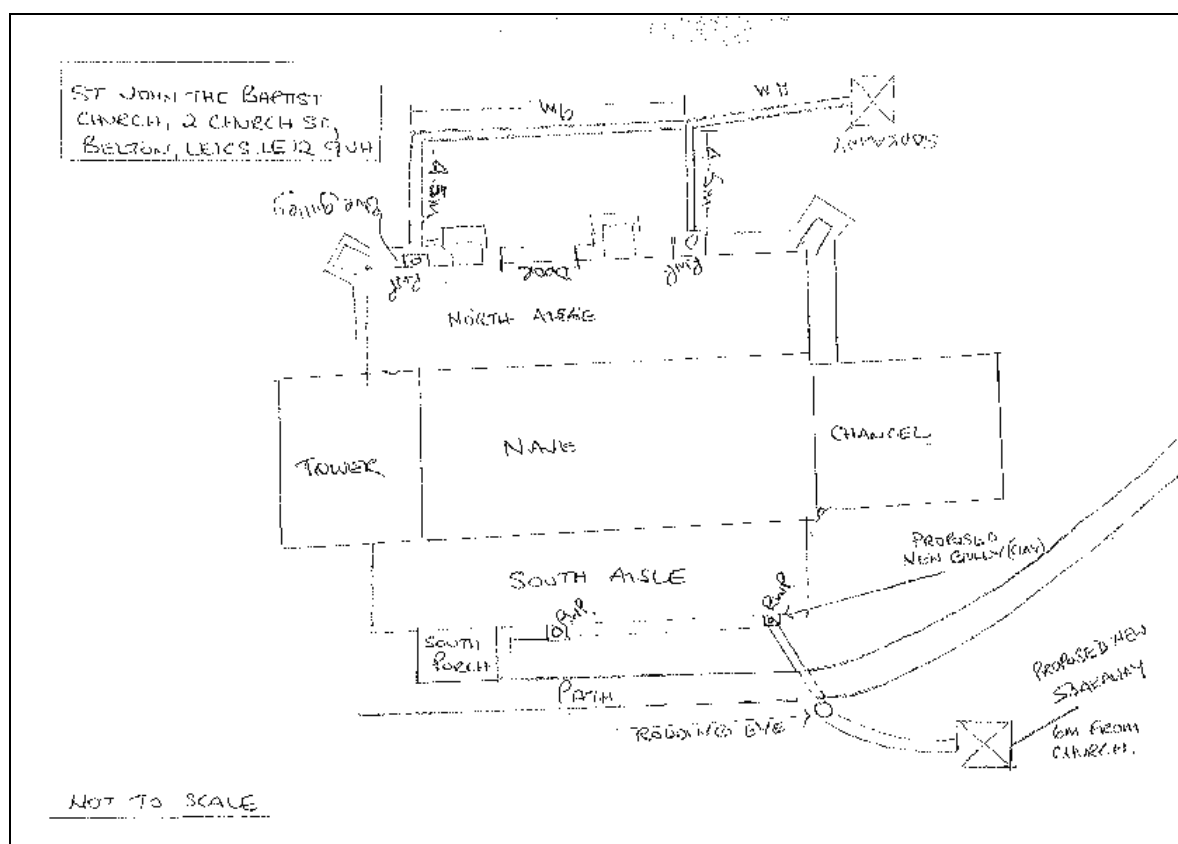 ST JOHN THE BAPTIST
CHURCH, 2 CHURCH ST,
BELTON, LEICS. LE12 9UH
9m
4m
SOAKAWAY
4.5m
4.5m
New gulley
RWP
DOOR
RWP
NORTH AISLE
TOWER
NAVE
CHANCEL
PROPOSED
NEW GULLY (CLAY)
SOUTH AISLE
RWP.
RWP.
SOUTH
PORCH
PATH
RODDING EYE
PROPOSED NEW
SOAKAWAY
6M FROM
CHURCH.
NOT TO SCALE